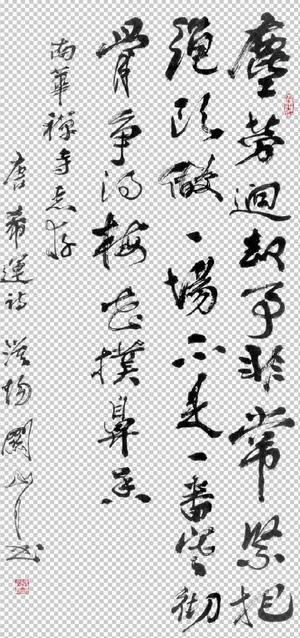 塵勞迴却事非常緊把
繩頭做一場不是一番寒徹
骨爭得梅花撲鼻香
南華禪寺
唐希運詩